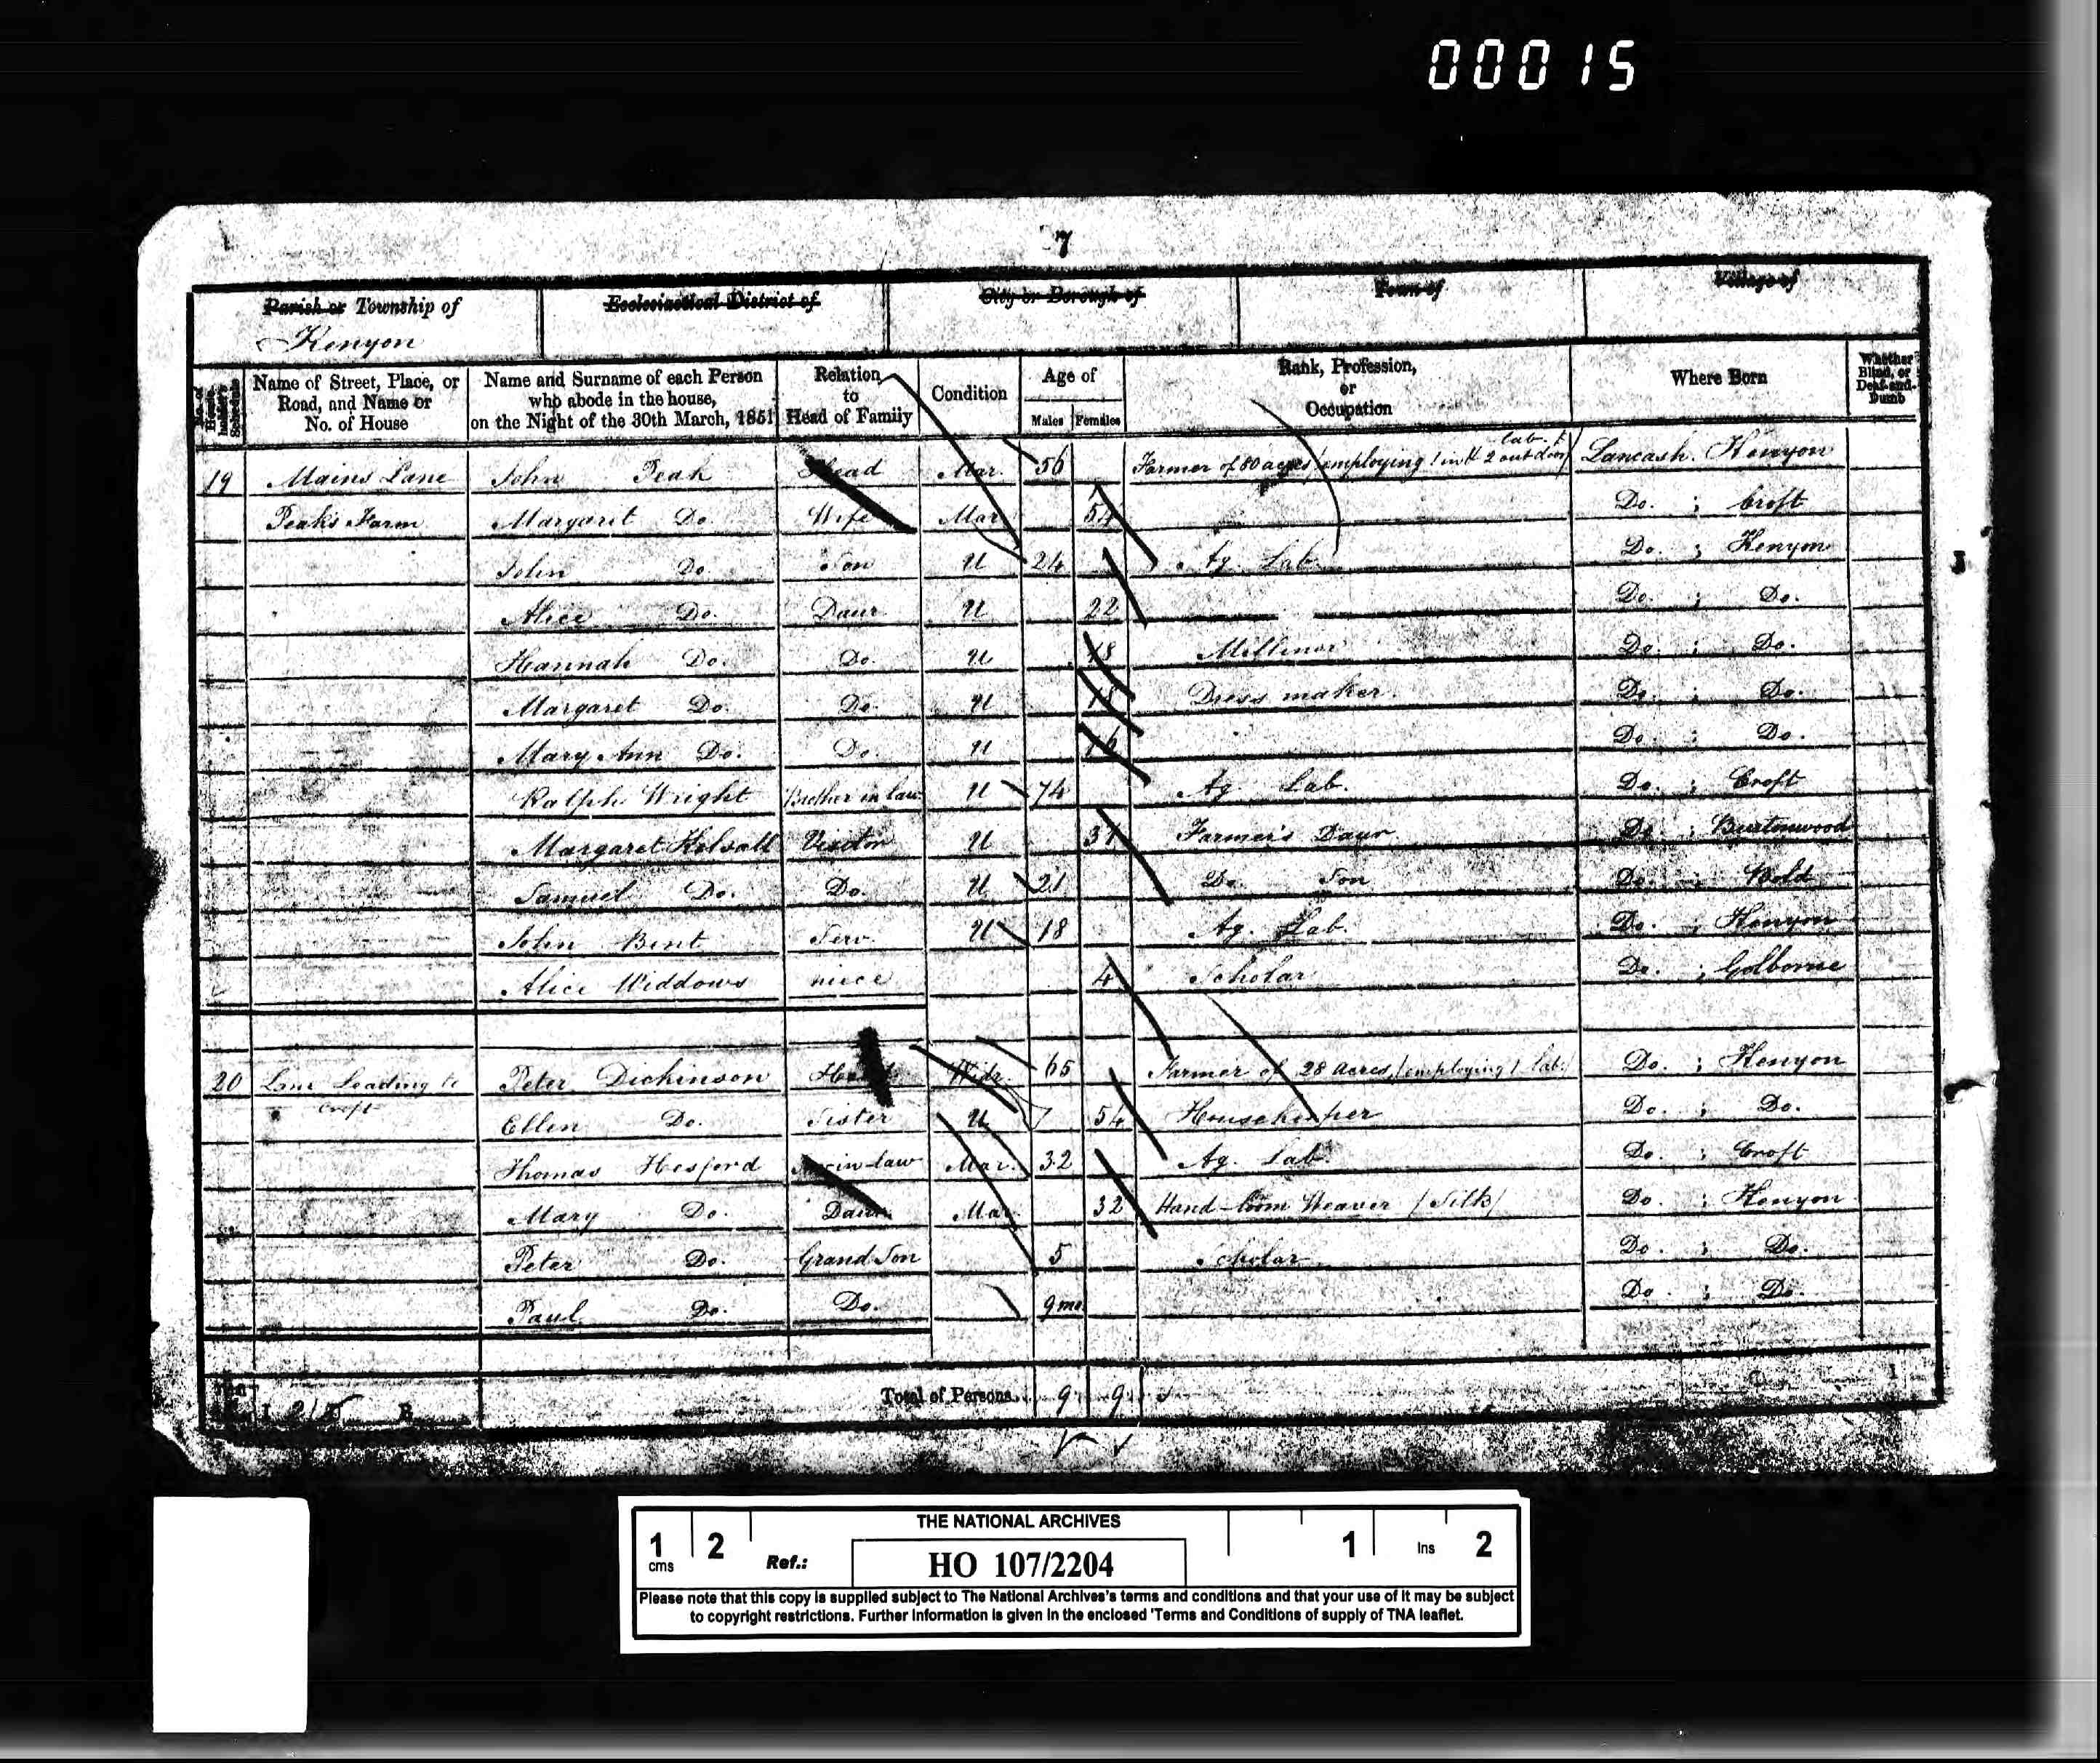 00015
7
Parish or Township of
Kenyon
Ecclesiastical District of
City or Borough of
Town of
Village of
No. of House-holder's Schedule
Name of Street, Place, or Road, and Name or No. of House
Name and Surname of each Person who abode in the house, on the Night of the 30th March, 1851
Relation to Head of Family
Condition
Age of
Males Females
Rank, Profession, or Occupation
Where Born
Whether Blind, or Deaf-and-Dumb
19 Mains Lane John Peak Head Mar. 56 Farmer of 80 acres employing 1 in & 2 outdoor lab. Lancash. Kenyon
Peak's Farm Margaret Do. Wife Mar 54 Do. ; Croft
John Do. Son U 24 Ag. Lab. Do. ; Kenyon
Alice Do. Daur U 22 Do. ; Do.
Hannah Do. Do. U 18 Milliner Do. ; Do.
Margaret Do. Do. U 18 Dress maker. Do. ; Do.
Mary Ann Do. Do. U 16 Do. ; Do.
Ralph Wright Brother in law U 74 Ag. Lab. Do. ; Croft
Margaret Kelsall Visitor U 37 Farmer's Daur. Do. ; Burtonwood
Samuel Do. Do. U 21 Do. Son Do. ; Bold
John Bent Serv. U 18 Ag. Lab. Do. ; Kenyon
Alice Widdows niece 4 Scholar Do. ; Golborne
20 Lane Leading to Croft Peter Dickinson Head Widr. 65 Farmer of 28 acres, (employing 1 lab.) Do. ; Kenyon
Ellen Do. Sister U 54 Housekeeper Do. ; Do.
Thomas Hesford Son-in-law Mar. 32 Ag. Lab. Do. ; Croft
Mary Do. Daur Mar. 32 Hand-loom Weaver (Silk) Do. ; Kenyon
Peter Do. Grand Son 5 Scholar Do. ; Do.
Paul Do. Do. 9 mo. Do. ; Do.
Total of Persons... 9 9
THE NATIONAL ARCHIVES
1 cms 2 Ref.: HO 107/2204 1 Ins 2
Please note that this copy is supplied subject to The National Archives's terms and conditions and that your use of it may be subject
to copyright restrictions. Further Information is given in the enclosed 'Terms and Conditions of supply of TNA leaflet.